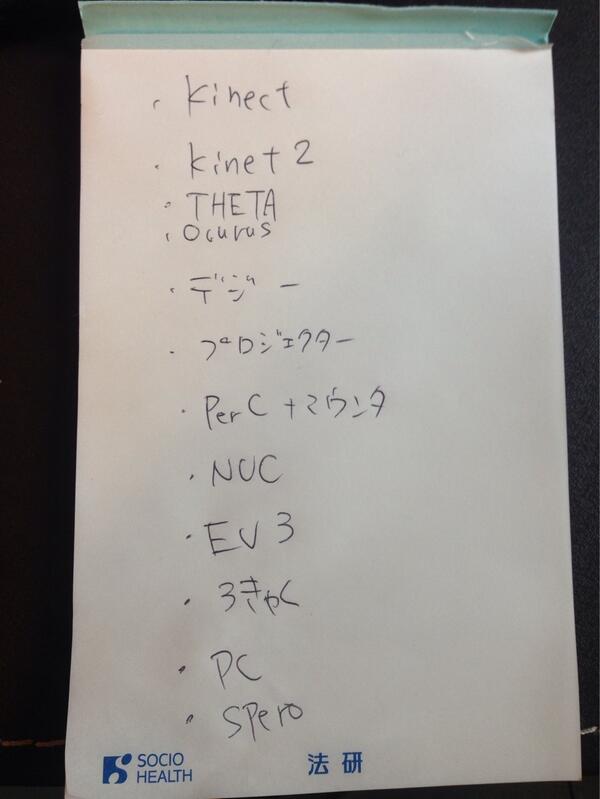 ・Kinect
・Kinet 2
・THETA
・Ocurus
・デジー
・プロジェクター
・PerC+マウンタ
・NUC
・EV3
・3きゃく
・PC
・Spero
SOCIO HEALTH 法研